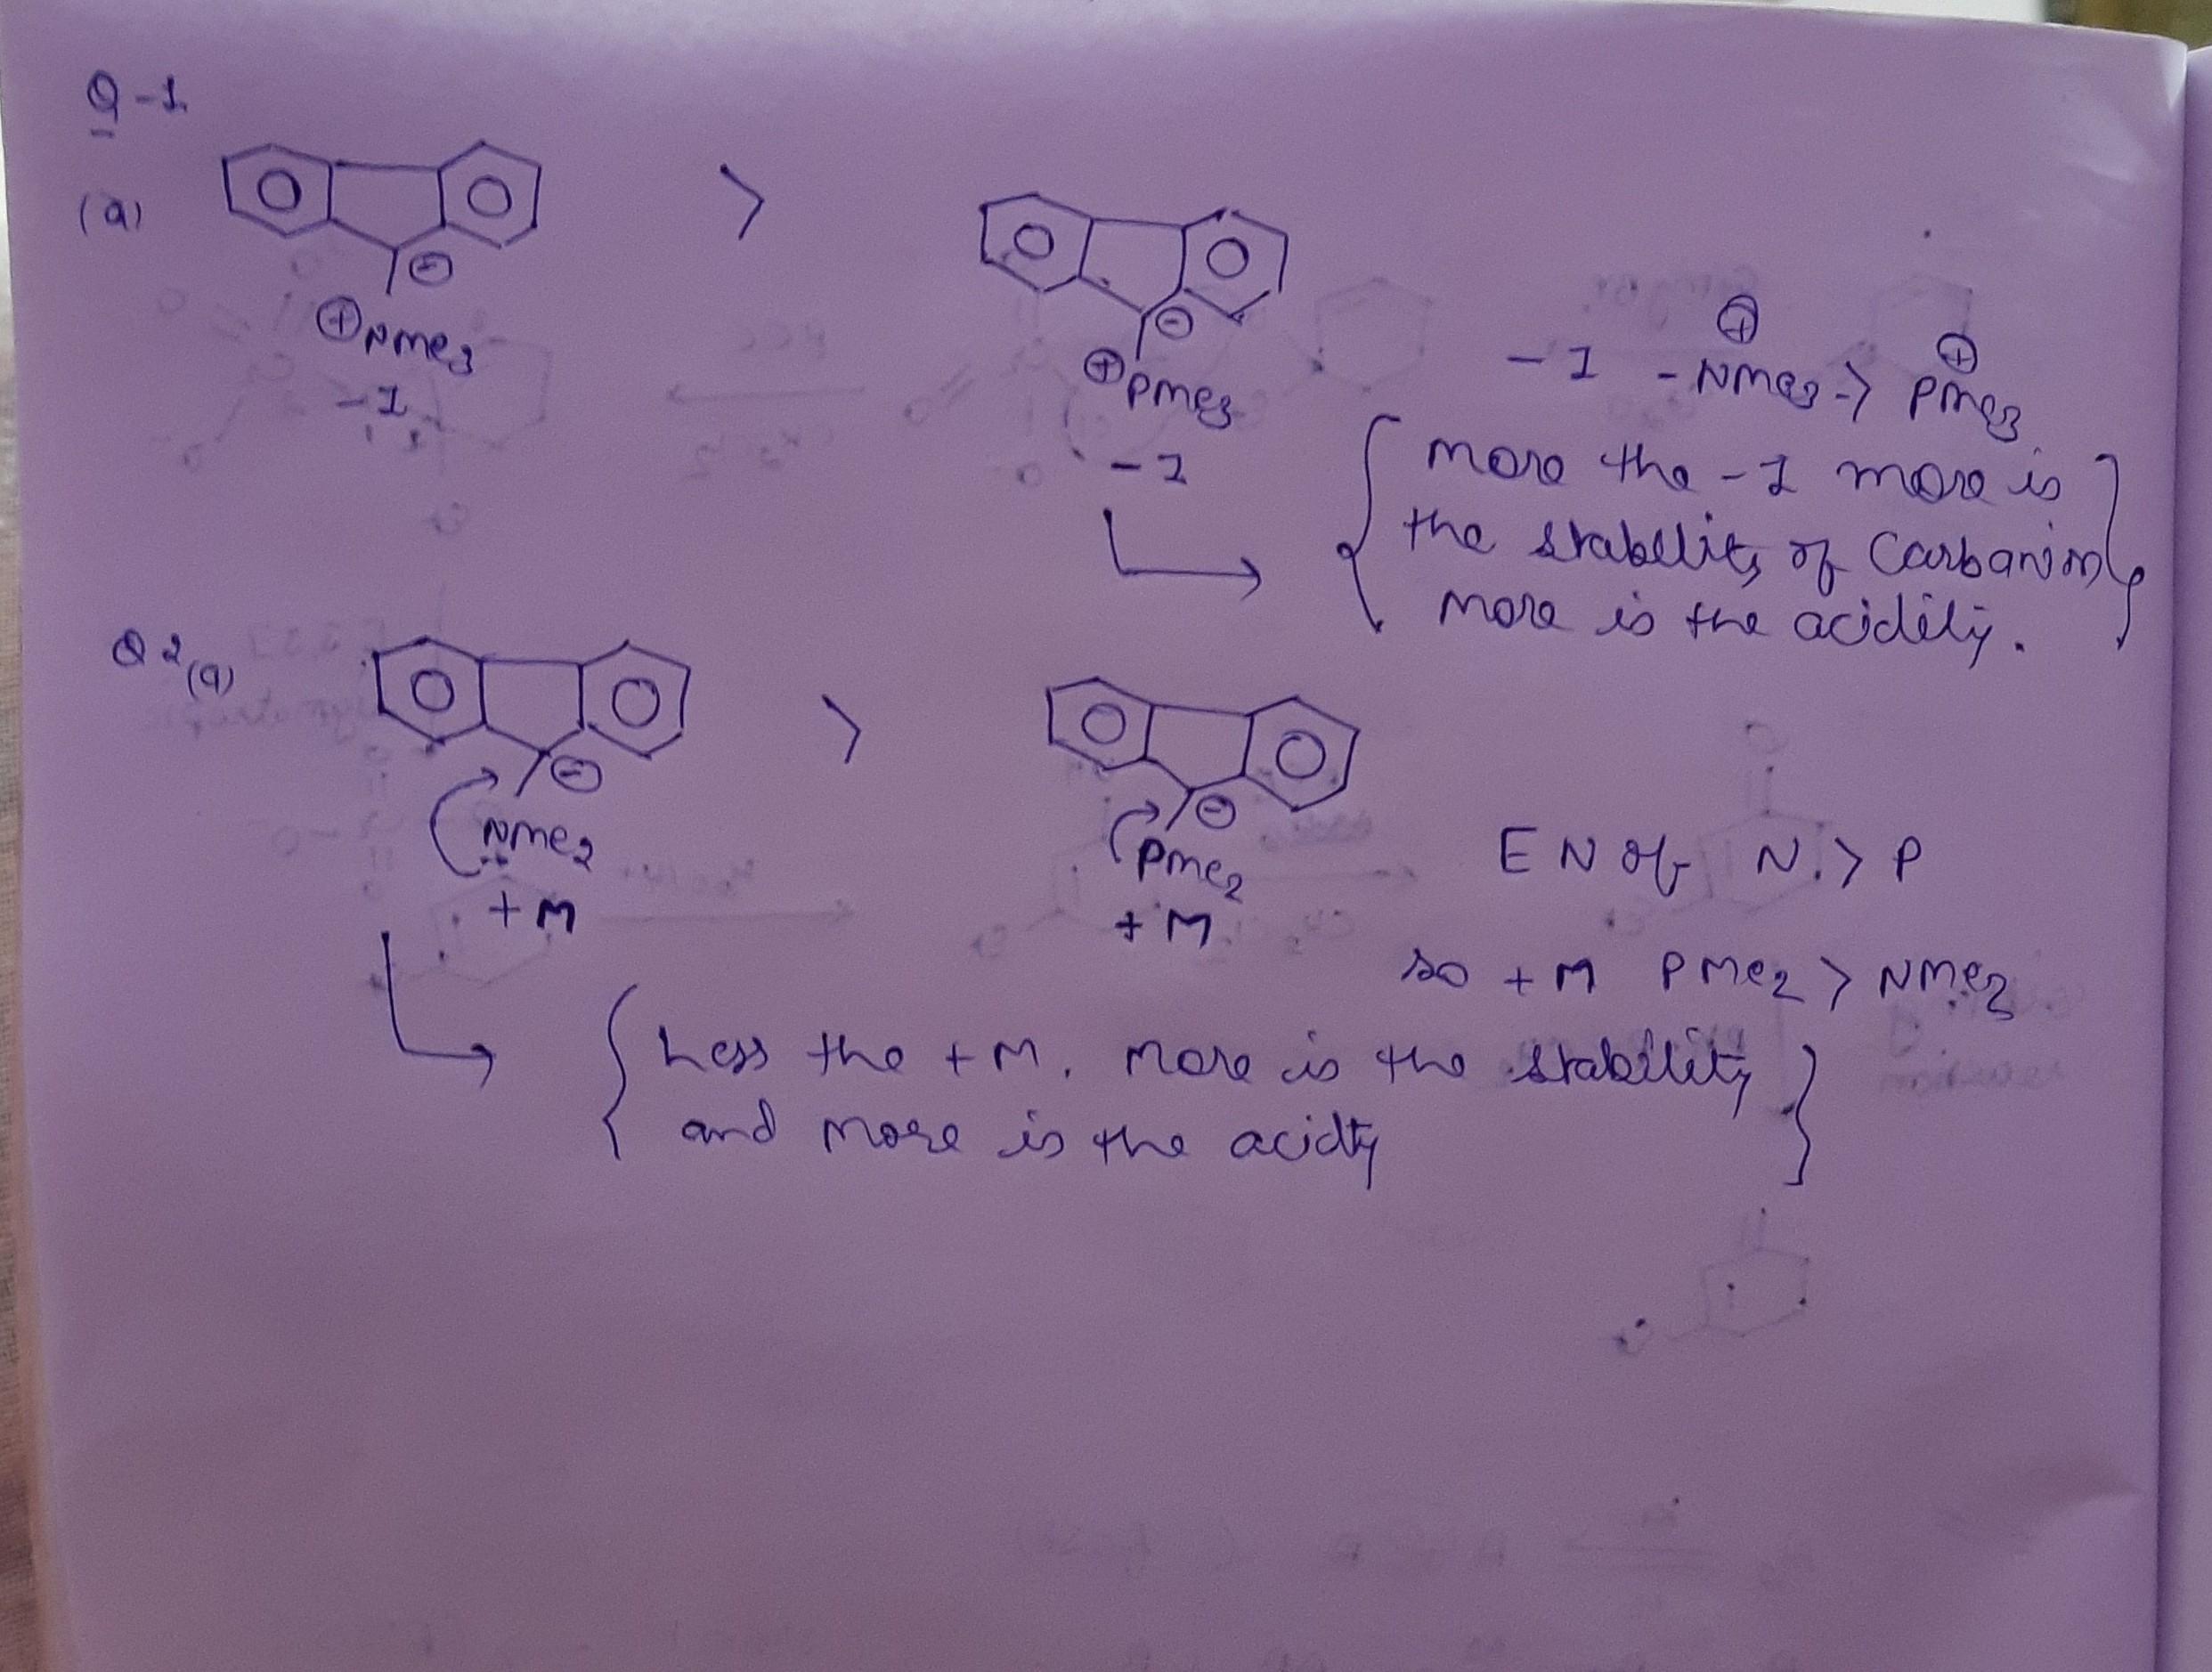 Q-1.
(a)
>
⊖ ⊖
⊕NMe3 ⊕PMe3
-I -I
⊕ ⊕
-I -NMe3 -> PMe3
more the -I more is
the stabllity of Carbanion
more is the acidity.
Q2(a)
>
⊖ ⊖
NMe2 PMe2
+M +M
EN of N > P
so +M PMe2 > NMe2
Less the +M. more is the stability
and more is the acidty